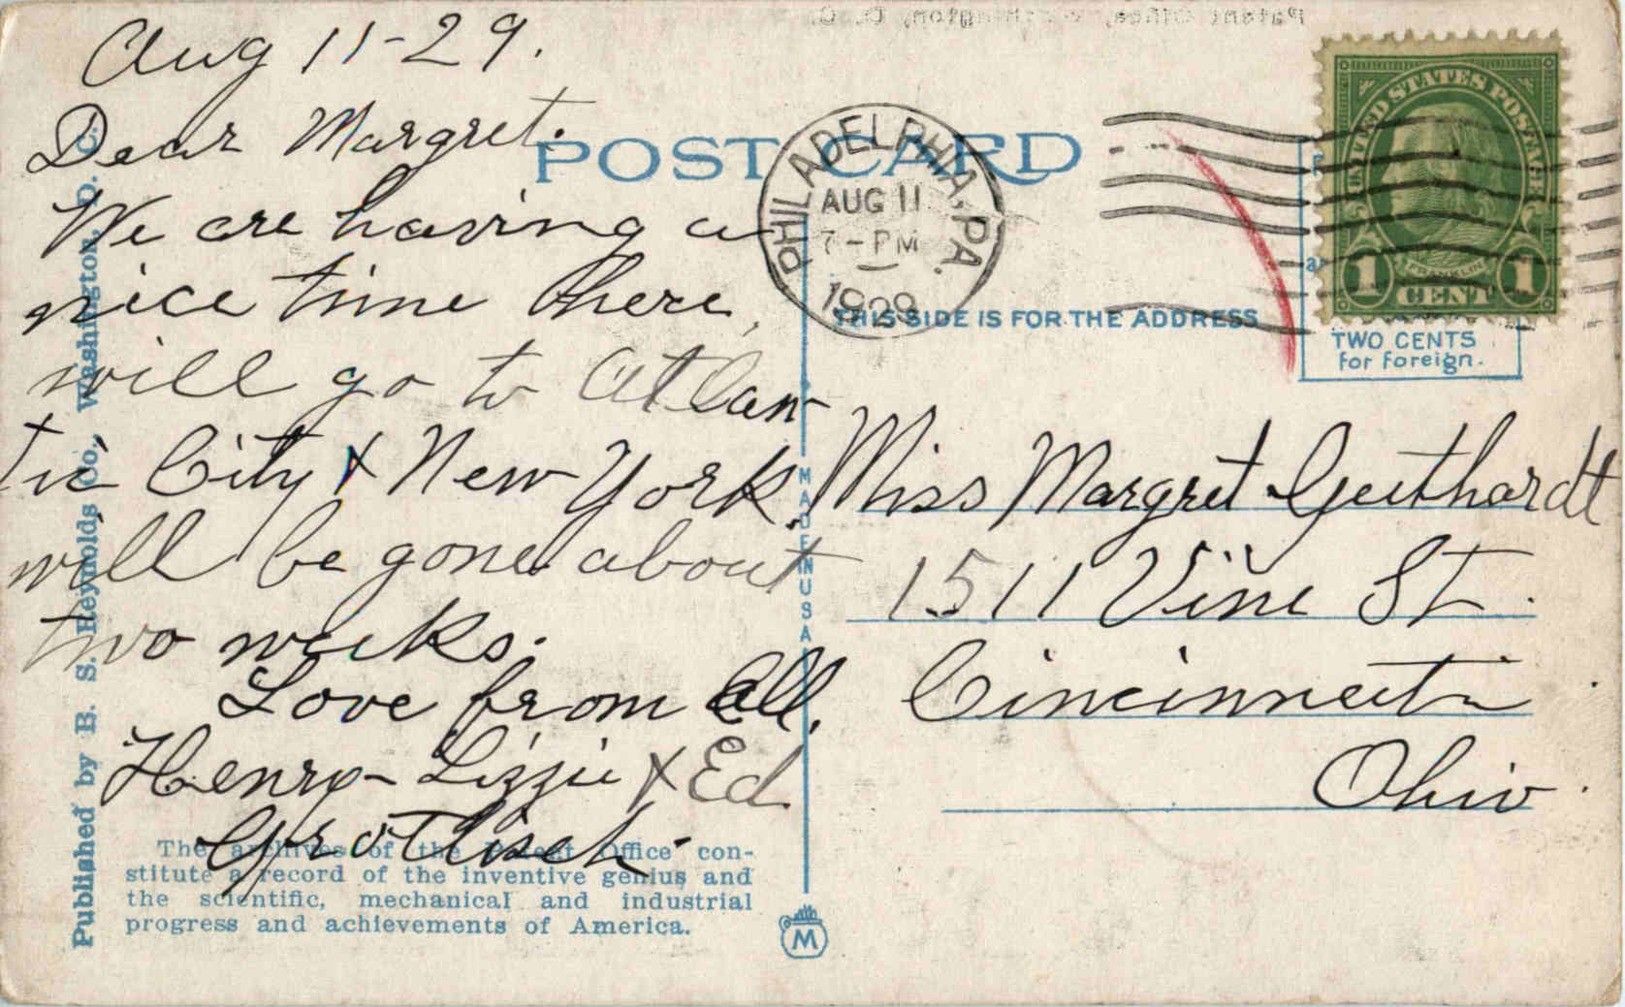 Patent Office, Washington, D. C.
Aug 11-29.
Dear Margret.
We are having a
nice time there,
will go to Atlan
tic City & New York.
will be gone about
two weeks.
Love from all,
Henry- Lizzie & Ed
POST CARD
PHILADELPHIA, PA.
AUG 11
7-PM
1929
UNITED STATES POSTAGE
FRANKLIN
1 CENT 1
THIS SIDE IS FOR THE ADDRESS
TWO CENTS
for foreign.
Miss Margret
1511 Vine St.
Cincinnati
Ohio.
MADE IN USA
Published by B. S. Reynolds Co., Washington, D. C.
The archives of the Patent Office con-
stitute a record of the inventive genius and
the scientific, mechanical and industrial
progress and achievements of America.
M